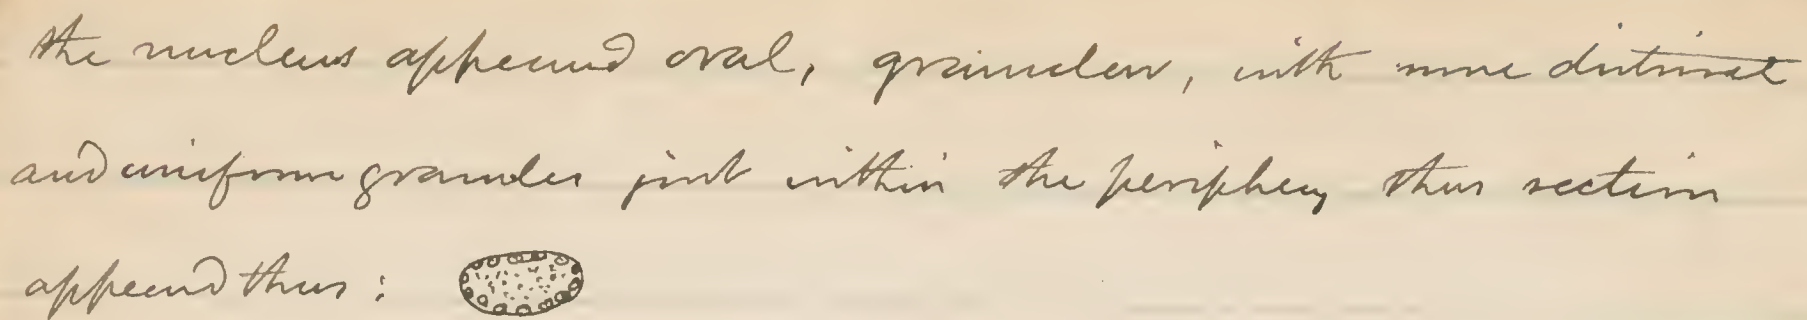 the nucleus appeared oral, granular, with more distinct
and uniform granules just within the periphery thus section
appeared thus :